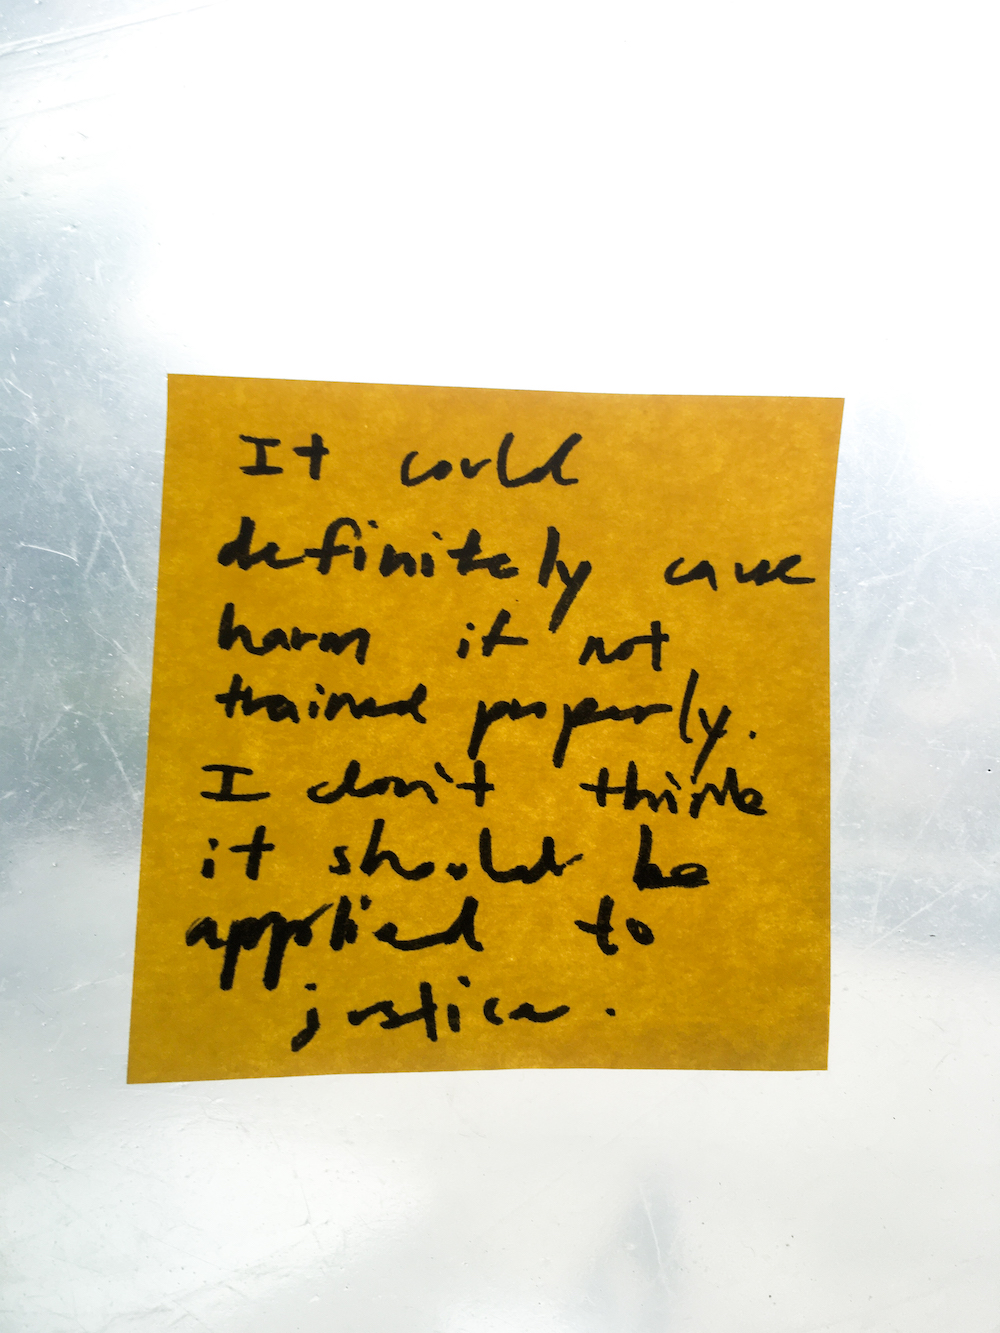 It could
definitely cause
harm if not
trained properly.
I don't think
it should be
applied to
justice.